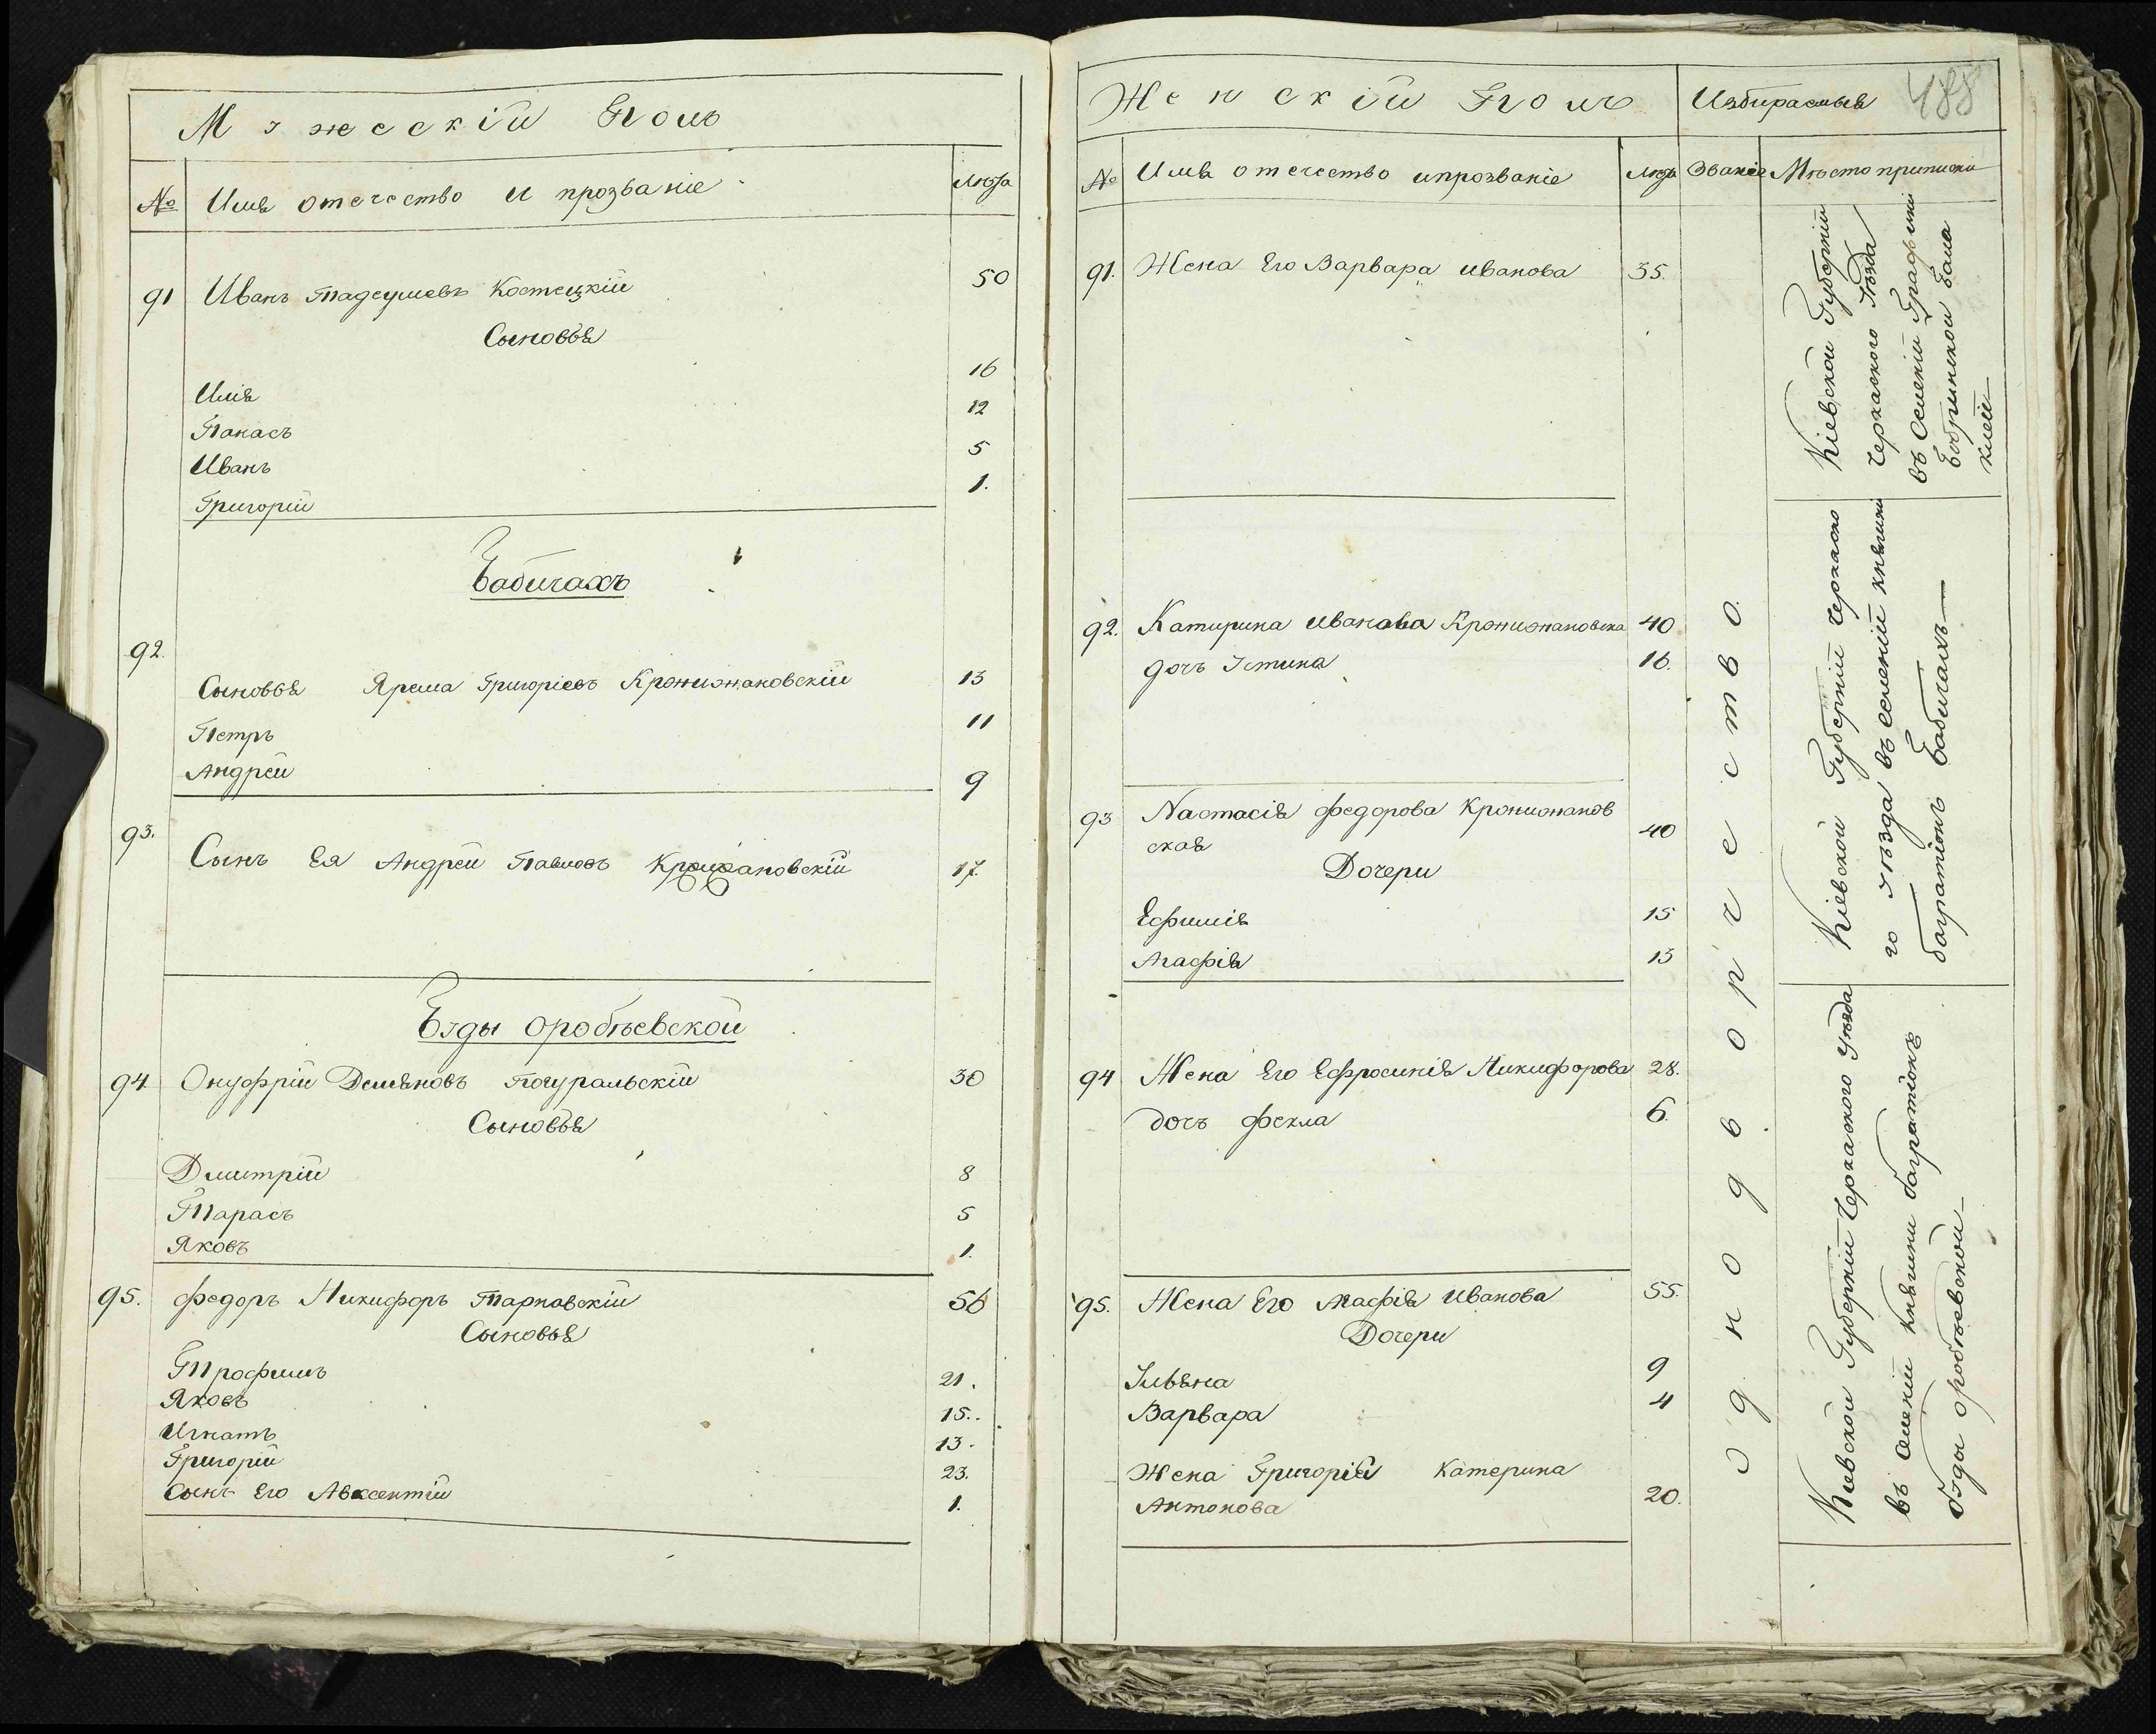 Мужескій Полъ
№ Имя отечество и прозваніе Люта
91 Иванъ Тадеушевъ Костецкій 50
Сыновья
Илія 16
Панасъ 12
Иванъ 5
Григорій 1.
Бабичахъ
92.
Сыновья Ярема Григоріевъ Кронижановскій 13
Петръ 11
Андрей 9
93.
Сынъ Ея Андрей Павловъ 17.
Буды Оробъевской
94 Онуфрій Демяновъ Погуральскій 30
Сыновья
Дмитрій 8
Тарасъ 5
Яковъ 1.
95. Федоръ Никифоръ Тарнавскій 56
Сыновья
Трофимъ 21.
Яковъ 15.
Игнатъ 13.
Григорій 23.
Сынъ Его Авксентій 1.
488
Женскій Полъ Избираемыя
№ Имя отечество ипрозваніе Люта Званіе Мѣсто приписки
91. Жена Его Варвара Иванова 35.
92. Катирина Иванова Кронижановска 40
дочъ Устина 16.
93 Настасія Федорова Кронижанов
ская 40
Дочери
Ефимія 15
Агафія 13
94 Жена Его Ефросинія Никифорова 28.
дочъ Фекла 6.
95. Жена Его Агафія Иванова 55.
Дочери
Ульяна 9
Варвара 4
Жена Григорія Катерина
Антонова 20.
Однодворчество
Кіевской Губерніи
Черкаского Уѣзда
въ Селеніи Графини
Бобринской Бала
клеи
Кіевской Губерніи Черкаско
го Уѣзда въ селеніи княгини
багратіонъ Бабичахъ
Киевской Губерніи Черкаского Уѣзда
въ Селеніи княгини багратіонъ
буды оробъевской